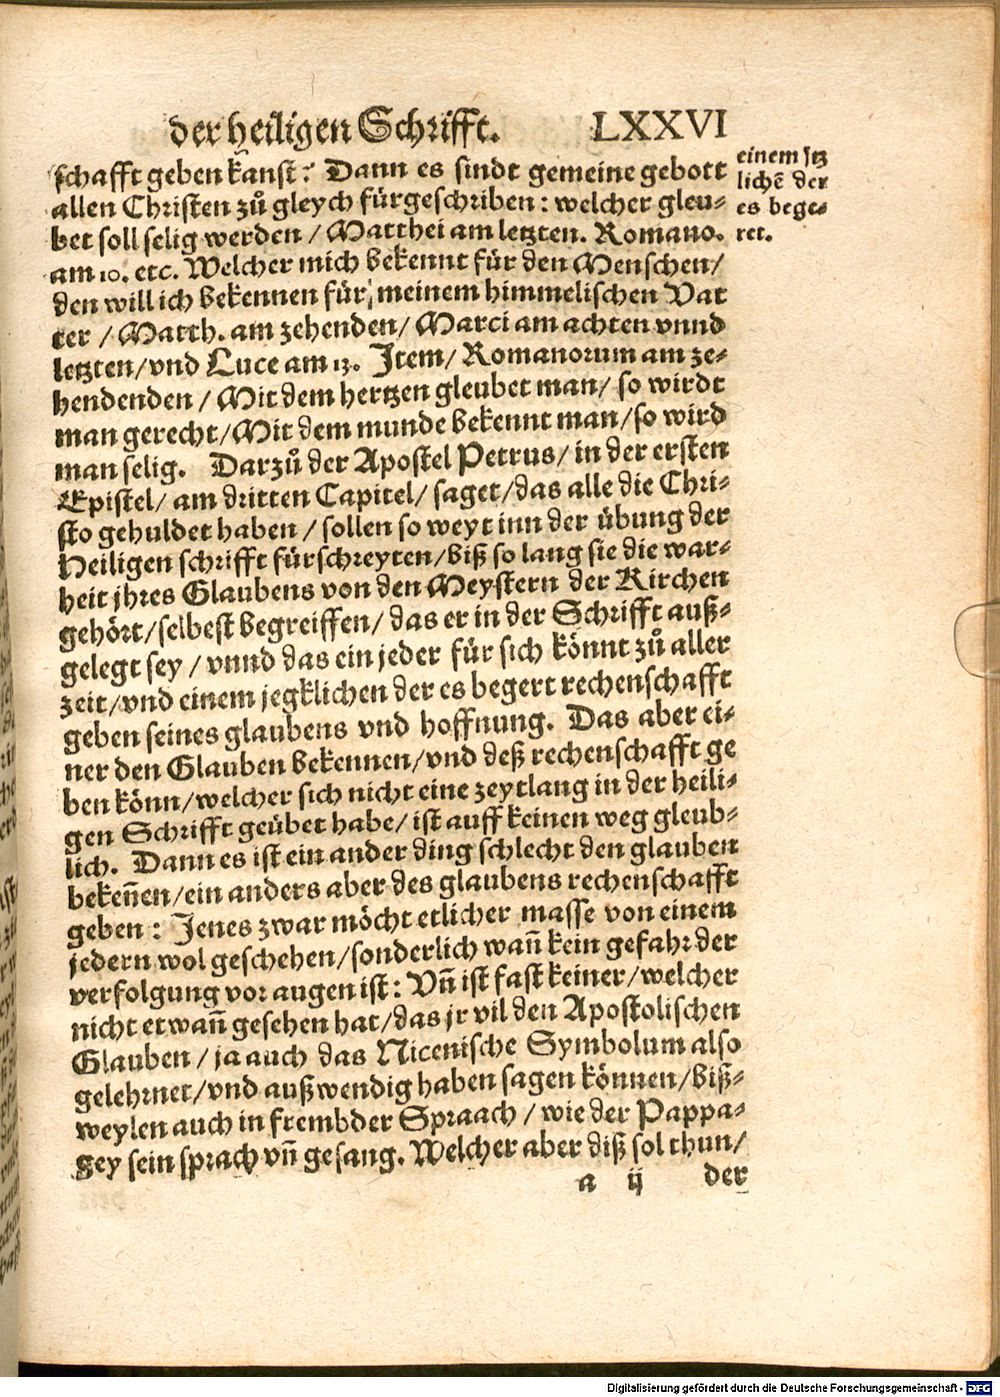 der heiligen Schrifft. LXXVI
schafft geben kanst: Dann es sindt gemeine gebott
allen Christen zů gleych fürgeschriben: welcher gleu-
bet soll selig werden / Matthei am letzten. Romano.
am 10. etc. Welcher mich bekennt für den Menschen/
den will ich bekennen für meinem himmelischen Vat
ter / Matth. am zehenden/ Marci am achten vnnd
letzten/vnd Luce am 13. Item/ Romanorum am ze-
hendenden / Mit dem hertzen gleubet man/ so wirdt
man gerecht/Mit dem munde bekennt man/so wird
man selig. Darzů der Apostel Petrus/ in der ersten
Epistel/ am dritten Capitel/ saget/das alle die Chri-
sto gehuldet haben / sollen so weyt inn der übung der
Heiligen schrifft fürschreyten/biß so lang sie die war-
heit jhres Glaubens von den Meystern der Kirchen
gehört/selbest begreiffen/ das er in der Schrifft auß-
gelegt sey / vnnd das ein jeder für sich könnt zů aller
zeit/vnd einem jegklichen der es begert rechenschafft
geben seines glaubens vnd hoffnung. Das aber ei-
ner den Glauben bekennen/vnd deß rechenschafft ge
ben könn/welcher sich nicht eine zeytlang in der heili-
gen Schrifft geübet habe/ ist auff keinen weg gleub-
lich. Dann es ist ein ander ding schlecht den glauben
bekeñen/ein anders aber des glaubens rechenschafft
geben: Jenes zwar möcht etlicher masse von einem
jedern wol geschehen/sonderlich wañ kein gefahr der
verfolgung vor augen ist: Vñ ist fast keiner/welcher
nicht etwañ gesehen hat/das jr vil den Apostolischen
Glauben / ja auch das Nicenische Symbolum also
gelehrnet/vnd außwendig haben sagen können/biß-
weylen auch in frembder Spraach / wie der Pappa-
gey sein sprach vñ gesang. Welcher aber diß sol thun/
a ij der
einem jtz
lichẽ der
es bege-
ret.
Digitalisierung gefördert durch die Deutsche Forschungsgemeinschaft - DFG